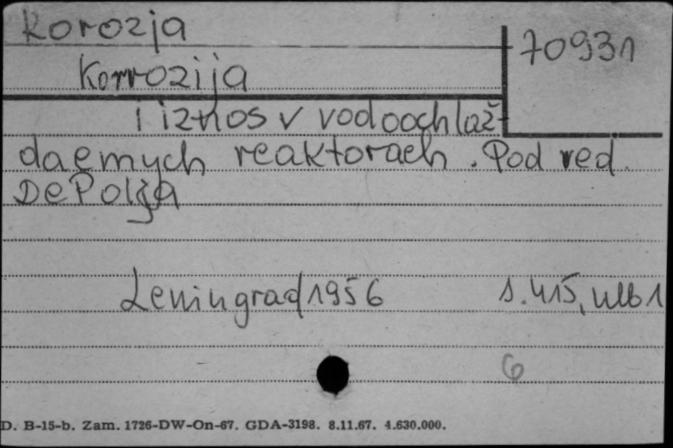 Korozja
70931
Korrozija
i iznos v vodoochlaž-
daemych reaktorach. Pod red.
DePolja
Leningrad 1956 s. 415, nlb 1
6
D. B-15-b. Zam. 1726-DW-On-67. GDA-3198. 8.11.67. 4.630.000.